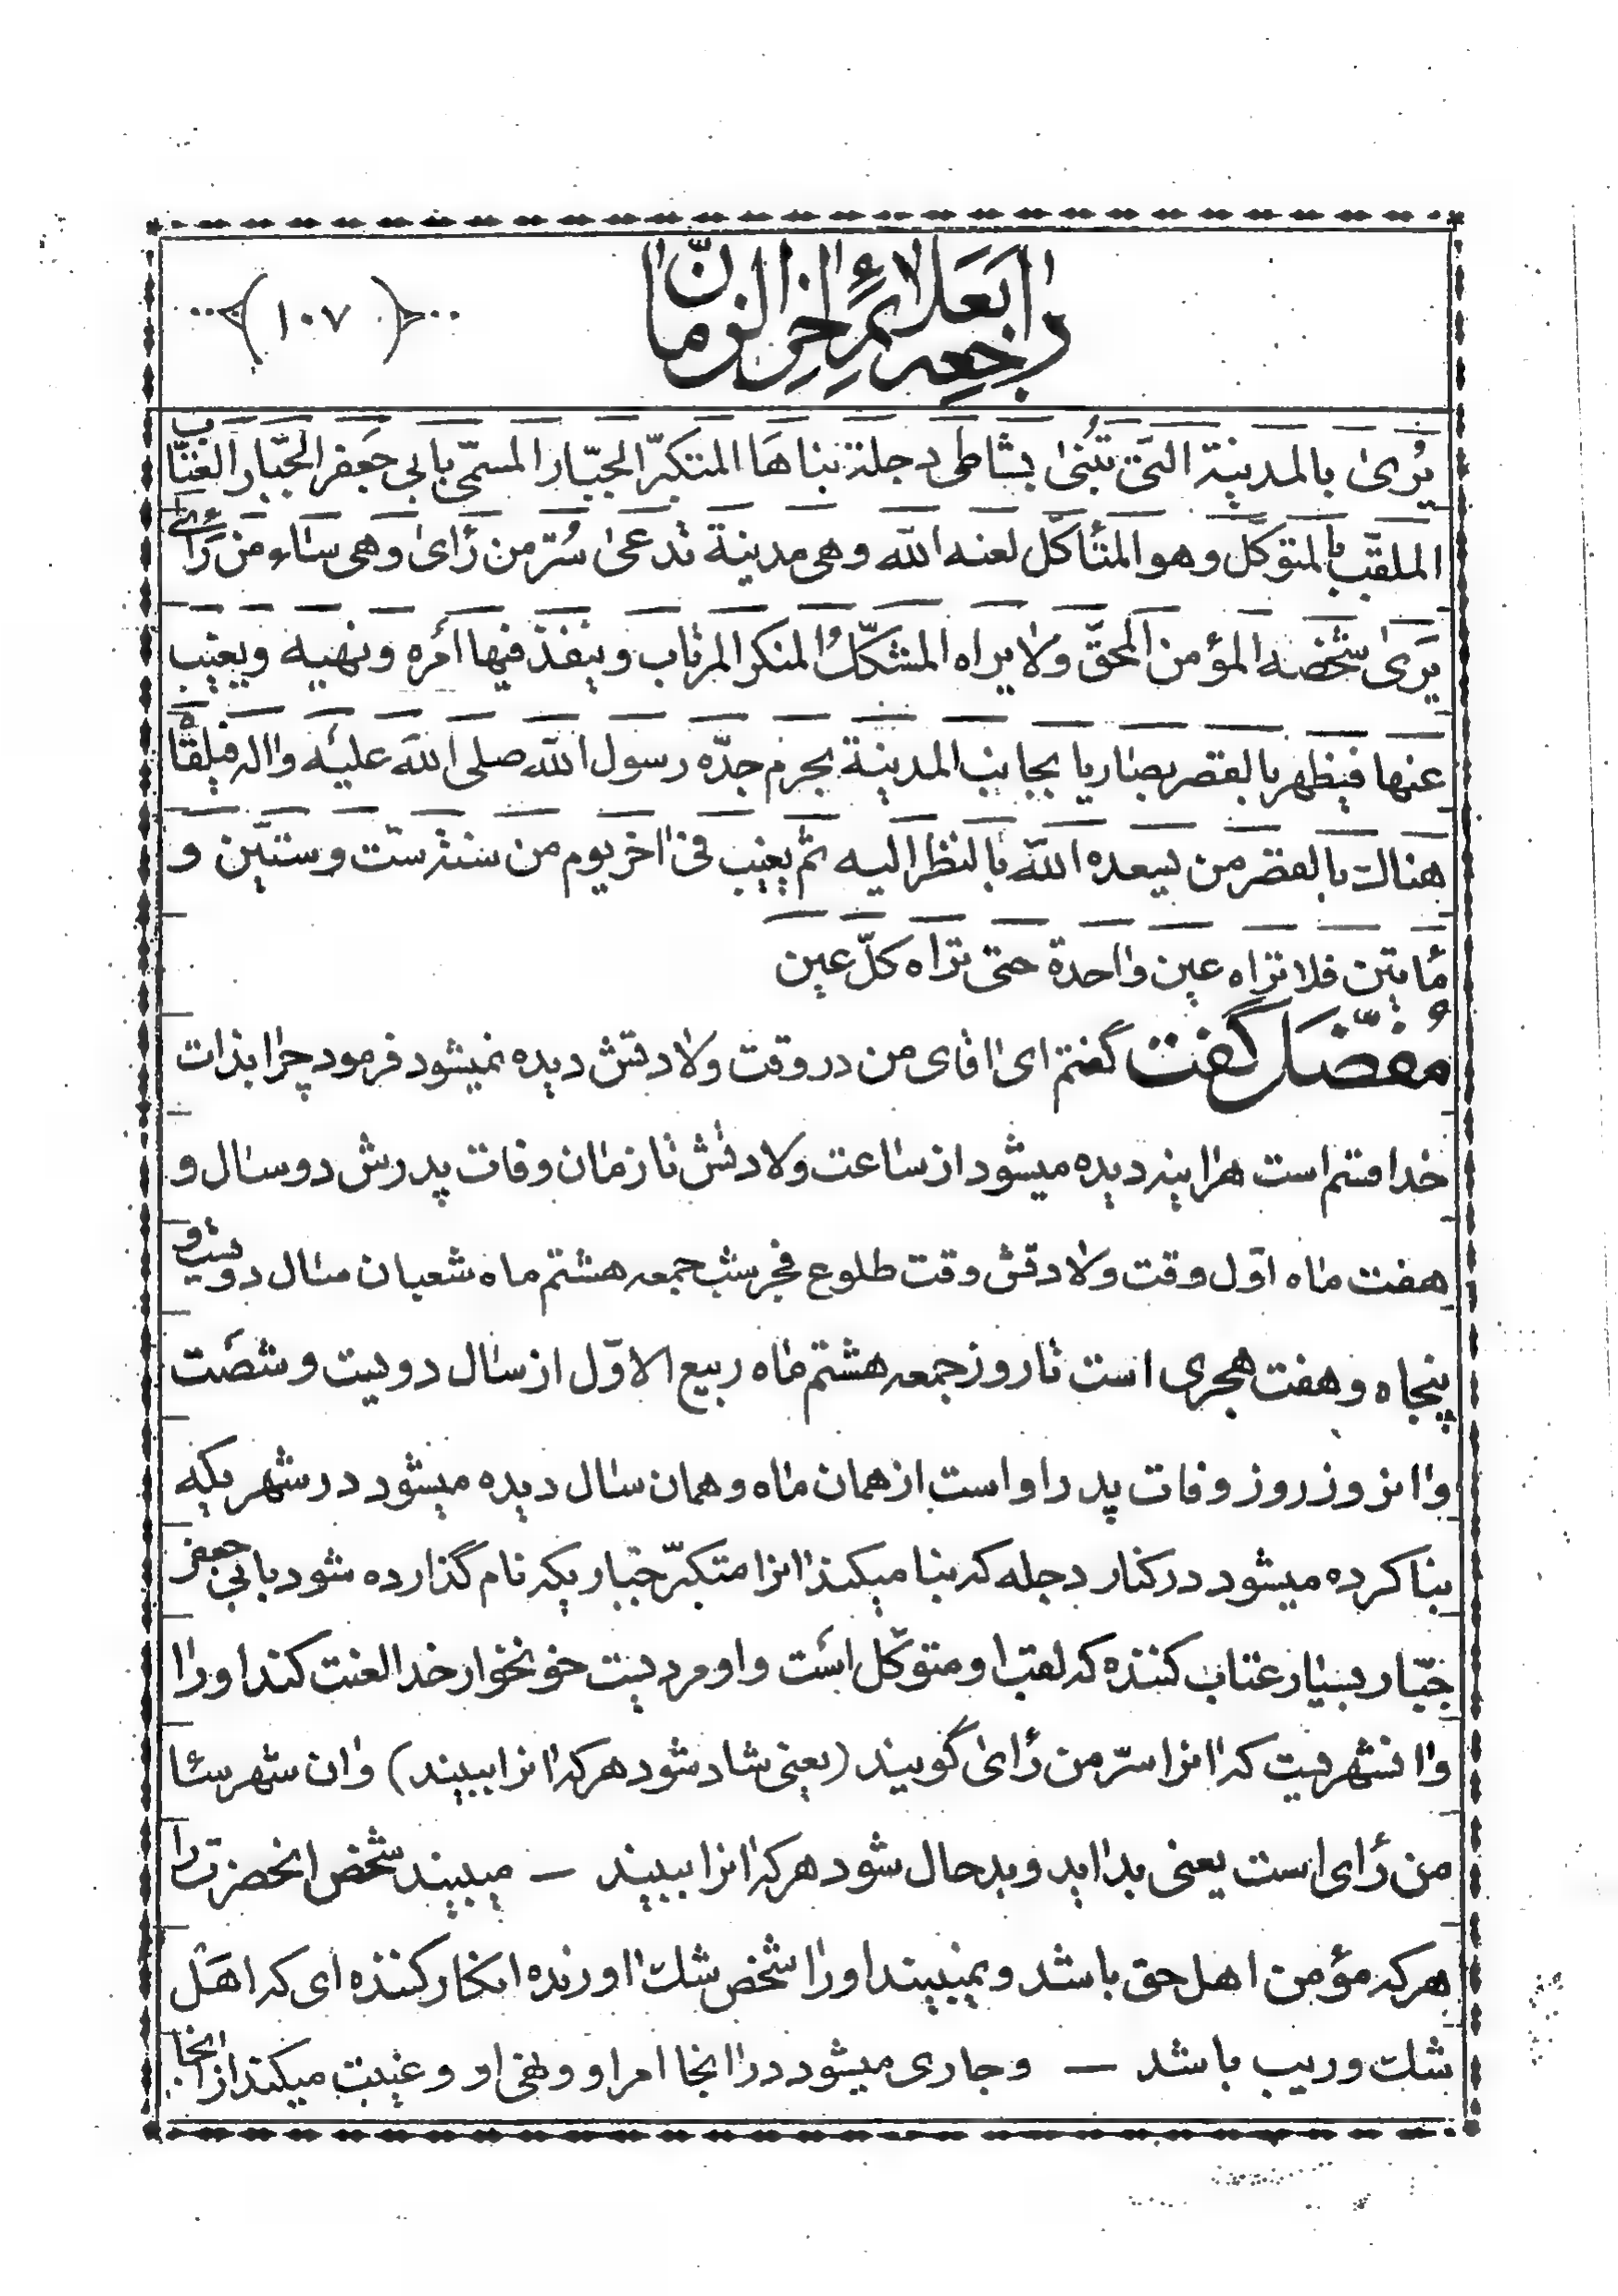 راجعه بعلائم اٰخر الزمانّ
(١٠٧)
يُرىٰ بالمدينة الّتى تُبْنىٰ بشاطى دجلة بناهَا المتكبّر الجبّار المسمّى بابى جَعفر الجبّار العتّاب
الملقّب بالمتوكّل وهو المتأكّل لعنه اللّه وهى مدينة تدعىٰ سُرّ من رٔاىٰ وهى سٰاء من رَأى
يَرىٰ شخصه المؤمن المحقّ ولا يراه المشكّكُ المنكر المرتاب وينفذ فيها امَره ونهيه ويغيب
عنها فيظهر بالقصر بصاريا بجانب المدينة بحرم جدّه رسول اللّه صلى اللّه عليَه واٰله فيلقاه
هناك بالقصر من يسعده اللّه بالنظر اليه ثمّ يغيب فى اٰخر يوم من سنة ستّ وستّين و
مٔاتين فلا تراه عين واحدة حتى ترٰاه كلّ عين
مُفضّل گفت گفتم اى اٰقاى من در وقت ولادتش ديده نميشود فرمود چرا بذات
خدا قسم است هراينه ديده ميشود از سٰاعت ولادتش تا زمٰان وفات پدرش دو سٰال و
هفت مٰاه اوّل وقت ولادتش وقت طلوع فجر شب جمعه هشتم ماه شعبان سٰال دويست و
پنجاه و هفت هجرى است تا روز جمعه هشتم مٰاه ربيع الاوّل از سٰال دويست و شصَت
واٰنروز روز وفات پدر او است از همان مٰاه و همان سٰال ديده ميشود در شهريكه
بنا كرده ميشود در كنار دجله كه بنا ميكند اٰنرا متكبّر جبّاريكه نام گذارده شود بابى جعفر
جبّار بسيار عتاب كننده كه لقب او متوكّل است و او مرديست خونخوار خدا لعنت كند او را
واٰنشهريست كه اٰنرا سرّ من رٔاىٰ گويند (يعنى شاد شود هركه اٰنرا ببيند) واٰن شهر سٔا
من رٔاى است يعنى بد اٰيد و بدحال شود هركه اٰنرا ببيند — ميبيند شخص انحضرت را
هركه مؤمن اهل حق باشد و نميبيند او را شخص شك اٰورنده انكار كننده اى كه اهَل
شك و ريب باشد — و جارى ميشود در اٰنجا امر او و نهى او و غيبت ميكند از اٰنجا